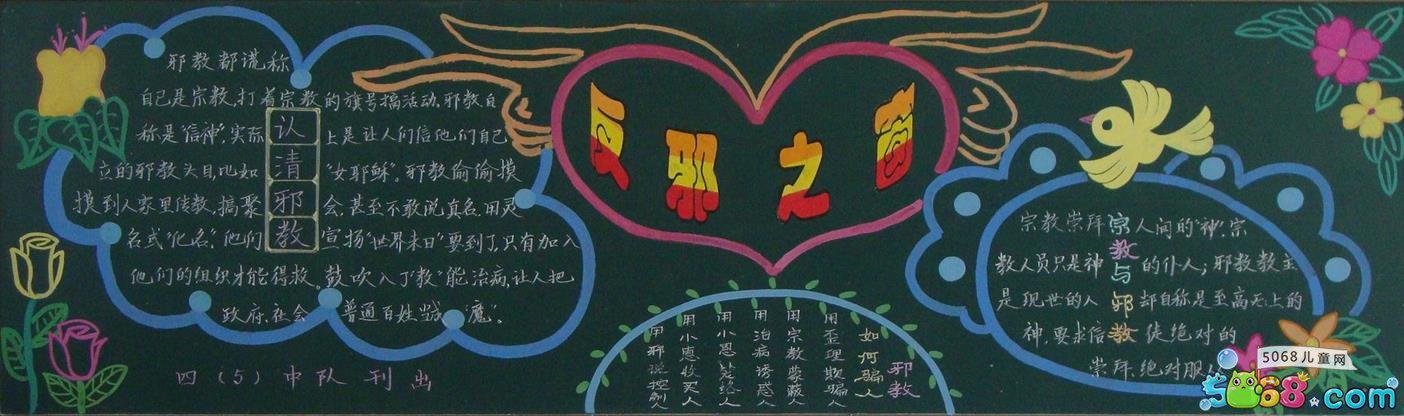 邪教都谎称
自己是宗教,打着宗教的旗号搞活动,邪教自
称是“信神”,实际上是让人们信他们自己
立的邪教头目,比如“女耶稣”。邪教偷偷摸
摸到人家里传教,搞聚会,甚至不敢说真名,用灵
名或“化名”,他们宣扬“世界末日”要到了,只有加入
他们的组织才能得救。鼓吹入了“教”能治病,让人把
政府、社会、普通百姓当成“魔”。
认清邪教
四(5)中队刊出
反邪之窗
邪教
如何骗人
用歪理欺骗人
用宗教蒙蔽人
用治病诱惑人
用小恩
用小惠收买人
用邪说控制人
宗教与邪教
宗教崇拜人间的“神”,宗
教人员只是神的仆人;邪教教主
是现世的人却自称是至高无上的
神,要求信徒绝对的
崇拜、绝对服
5068儿童网
5068.com